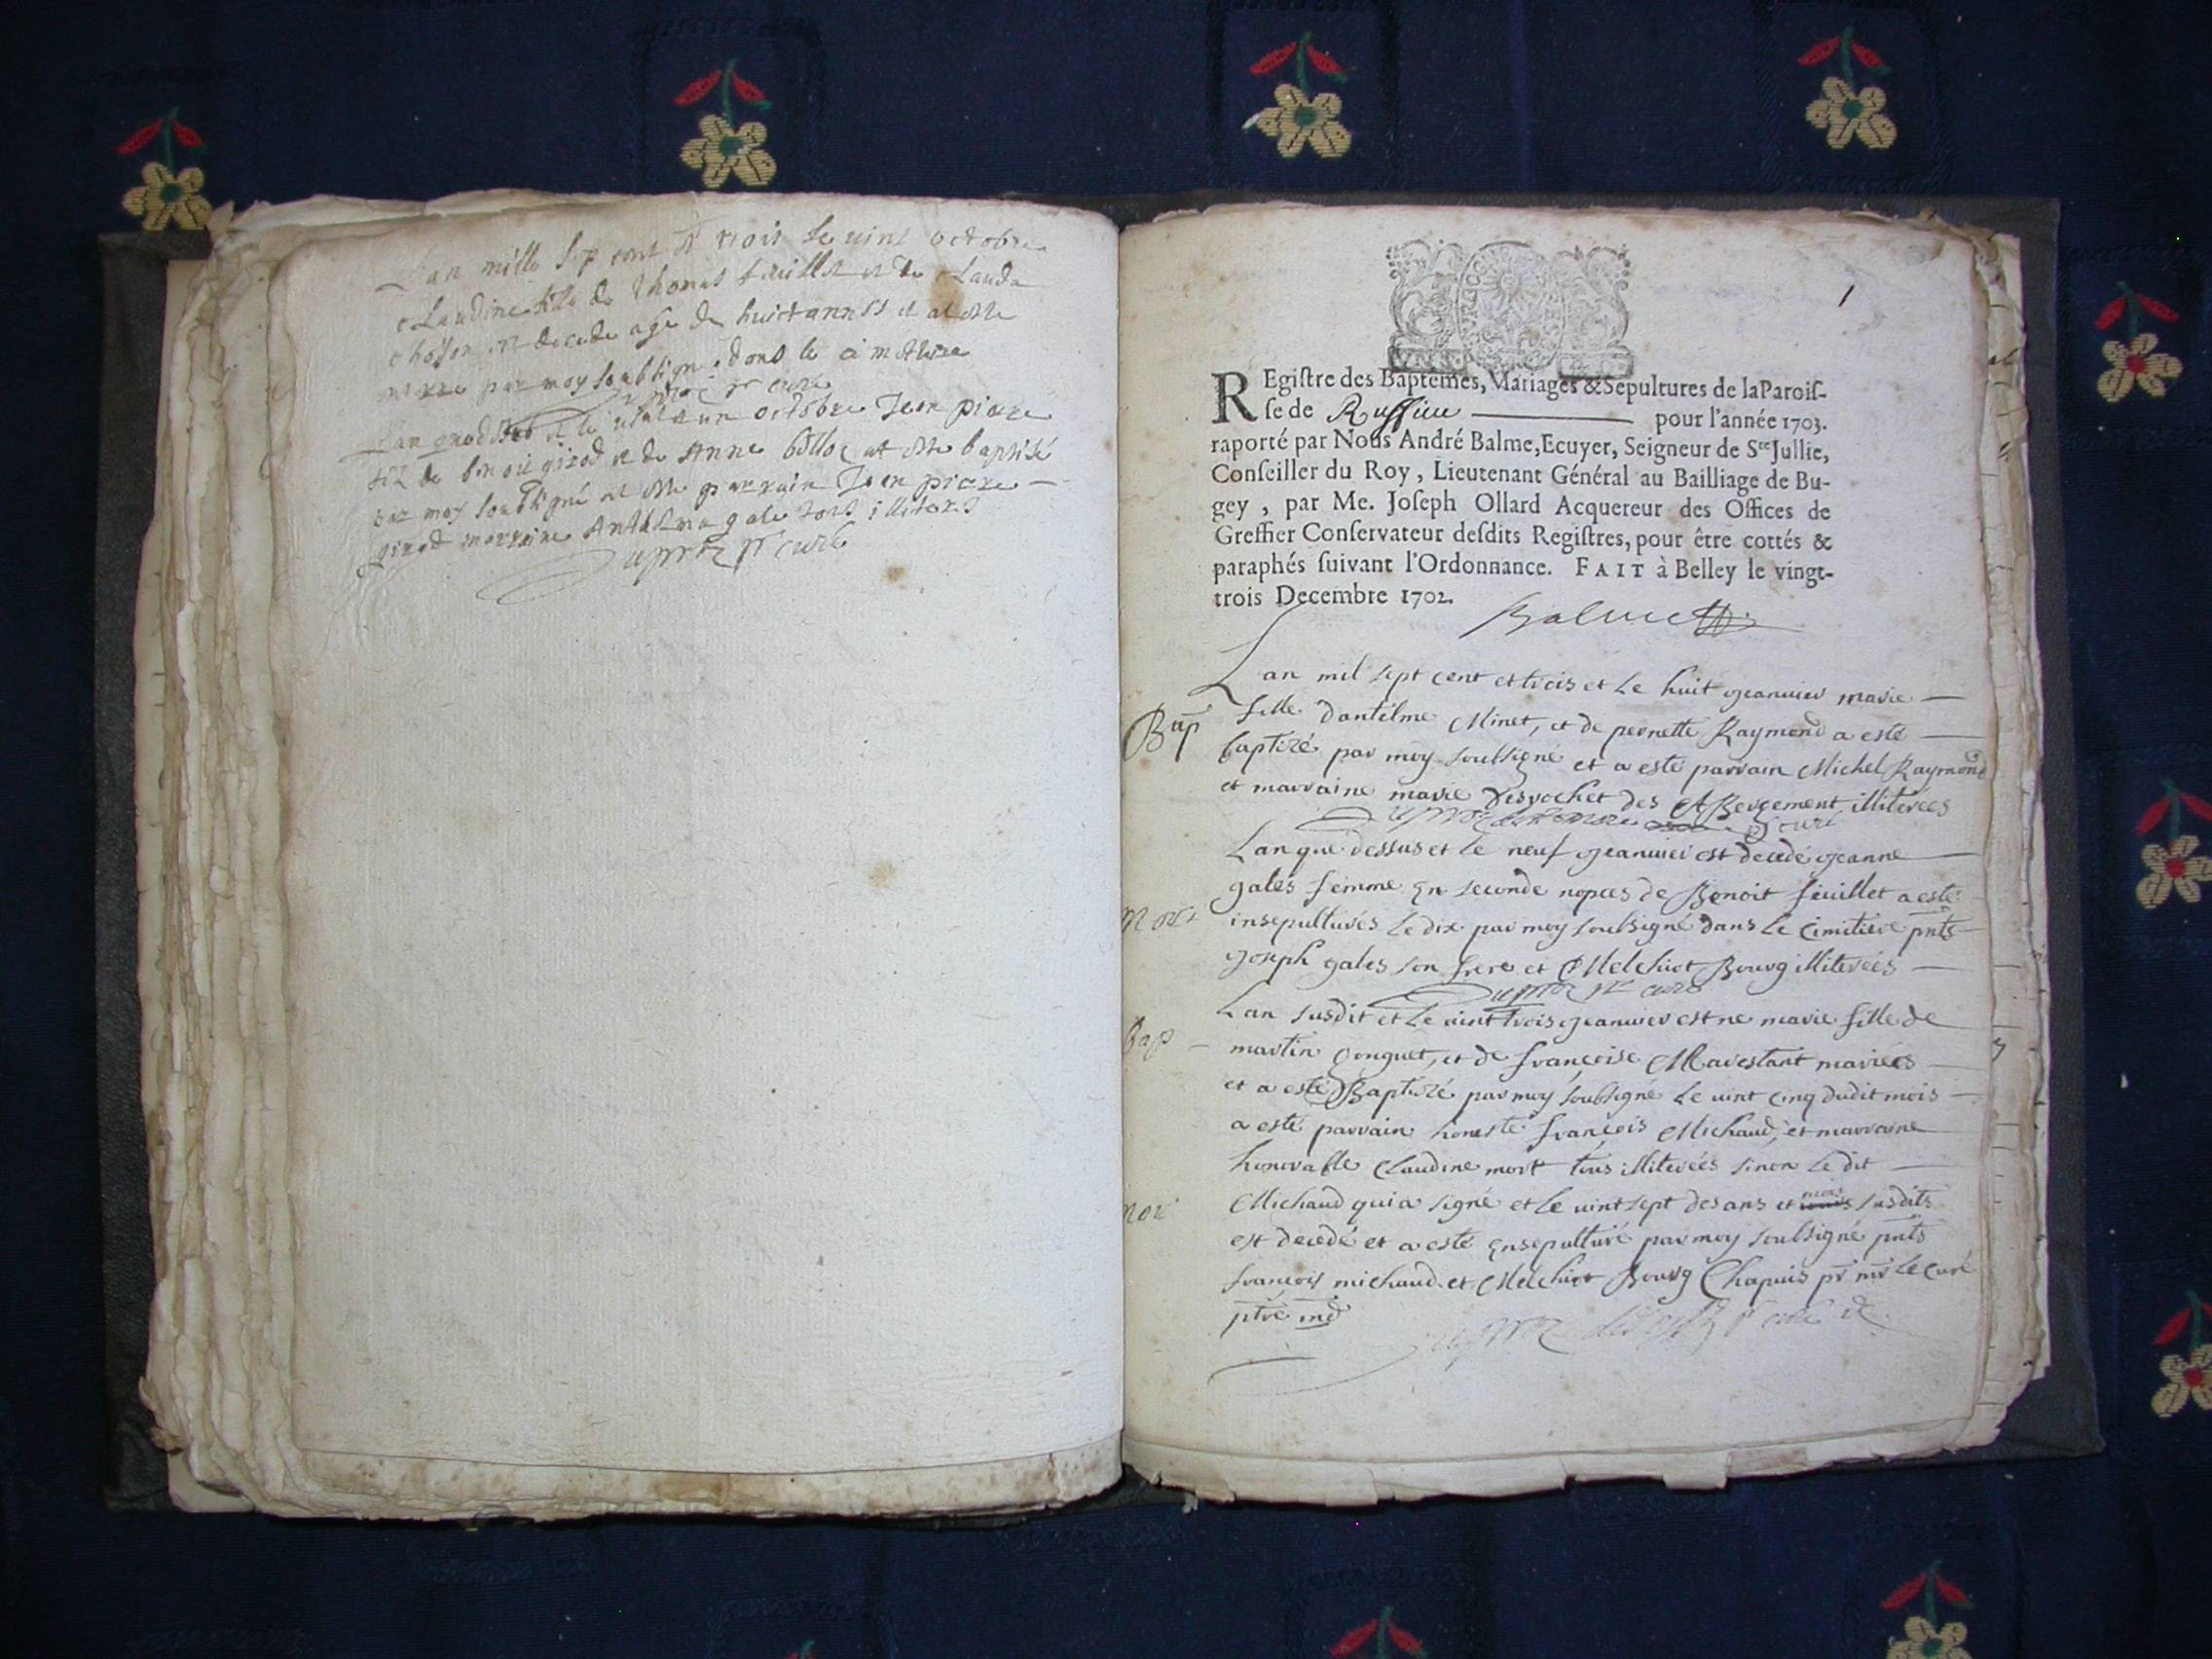 Lan mille sep cent et trois le vint octobre
Claudine fille de Thomas feuillet et de Clauda
est decede age de huict annes et a este
par moy soubsigne dans le cimetiere
pr curé
Lan que dessus et le vint et un octobre Jean piere
filz de benoit girod et de Anne billoz at este baptisé
par moy soubsigné at este parrain Jean piere
girod marraine Anthelma gale tous illiterés
pr curé
1
REgiſtre des Baptêmes, Mariages & Sepultures de la Paroiſ-
ſe de Ruffieu pour l'année 1703.
raporté par Nous André Balme, Ecuyer, Seigneur de Ste Jullie,
Conſeiller du Roy, Lieutenant Général au Bailliage de Bu-
gey, par Me. Joſeph Ollard Acquereur des Offices de
Greffier Conſervateur deſdits Regiſtres, pour être cottés &
paraphés ſuivant l'Ordonnance. FAIT à Belley le vingt-
trois Decembre 1702.
Balme
Lan mil sept cent et trois et le huit geanvier marie
Bap fille dantelme Minet, et de pernette Raymond a esté
baptizé par moy soubsigné et a esté parrain Michel Raymond
et marraine marie Desrochet des Abergement illiterées
curé
Lan que dessus et le neuf geanvier est decedé geanne
gales femme En seconde nopces de Benoit feuillet a esté
Mort insepulturés le dix par moy soubsigné dans le Cimitiere pnts
joseph gales son frere et Melchiot Bourg illiterées
pr curé
Lan susdit et le vint trois geanvier est ne marie fille de
Bap martin gonguet, et de françoise Mavestant mariées
et a esté Baptizé par moy soubsigné le vint cinq dudit mois
a esté parrain honeste françois Michaud, et marraine
honorable Claudine mort tous illiterées sinon le dit
Mor Michaud qui a signé et le vint sept des ans et mois susdits
est decedé et a esté Ensepulturé par moy soubsigné pnts
françois michaud et Melchiot Bourg Chapuis pr mr le curé
ptre ind
curé